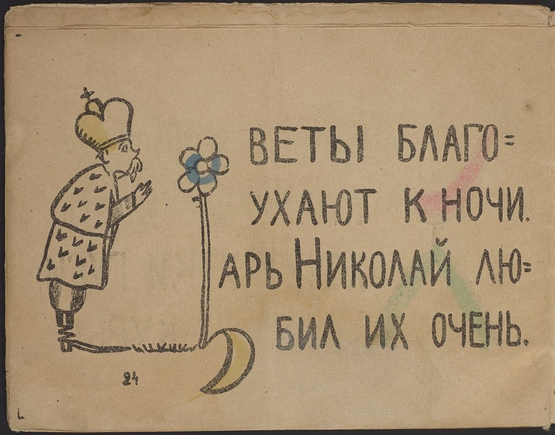 ВЕТЫ БЛАГО=
УХАЮТ К НОЧИ.
АРЬ НИКОЛАЙ ЛЮ=
БИЛ ИХ ОЧЕНЬ.
24